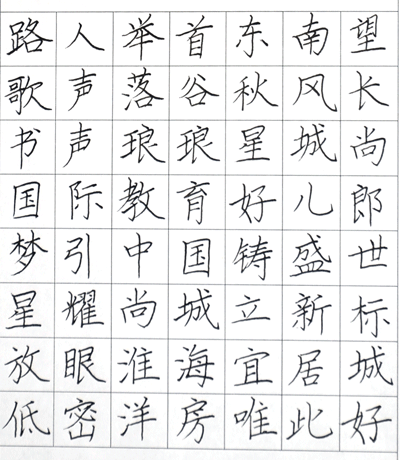 路人举首东南望
歌声落谷秋风长
书声琅琅星城尚
国际教育好儿郎
梦引中国铸盛世
星耀尚城立新标
放眼淮海宜居城
低密洋房唯此好